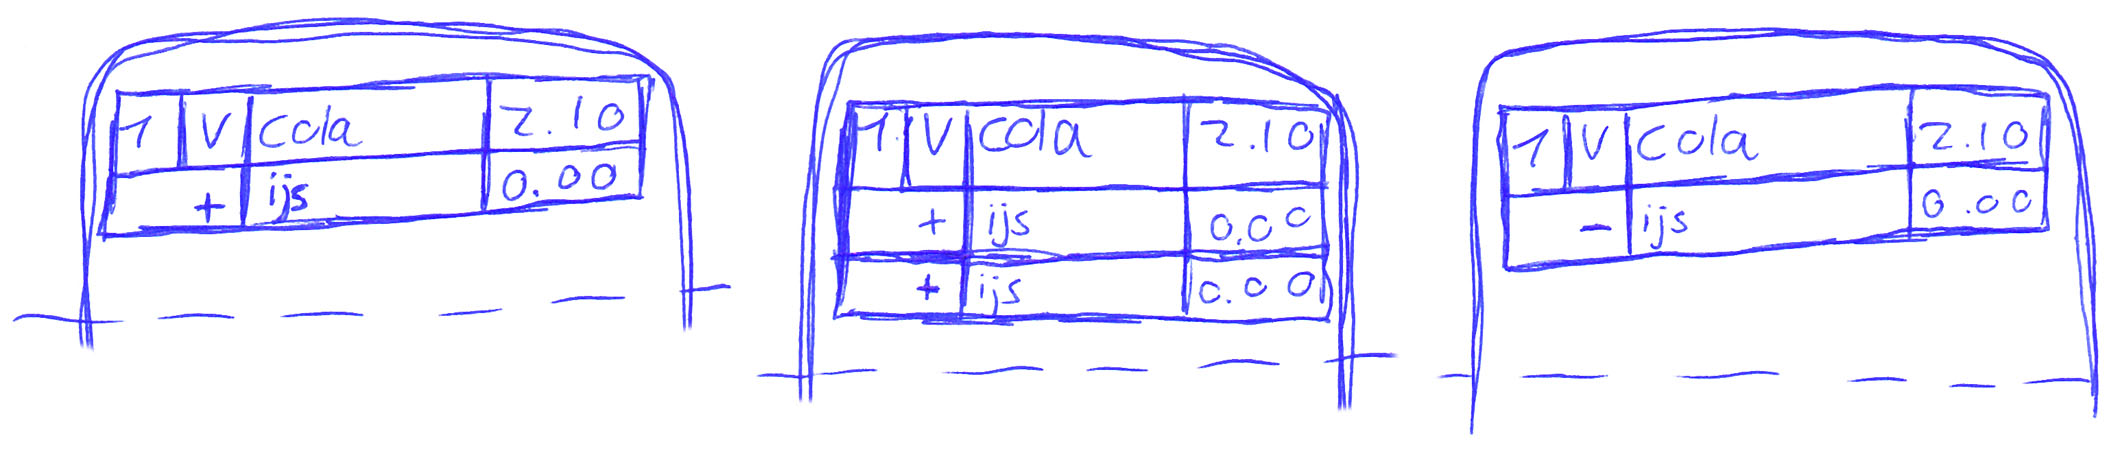 1 V cola 2.10
+ ijs 0.00
1 V cola 2.10
+ ijs 0.00
+ ijs 0.00
1 V cola 2.10
- ijs 0.00